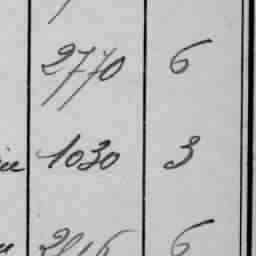 2770 6
1030 3
6